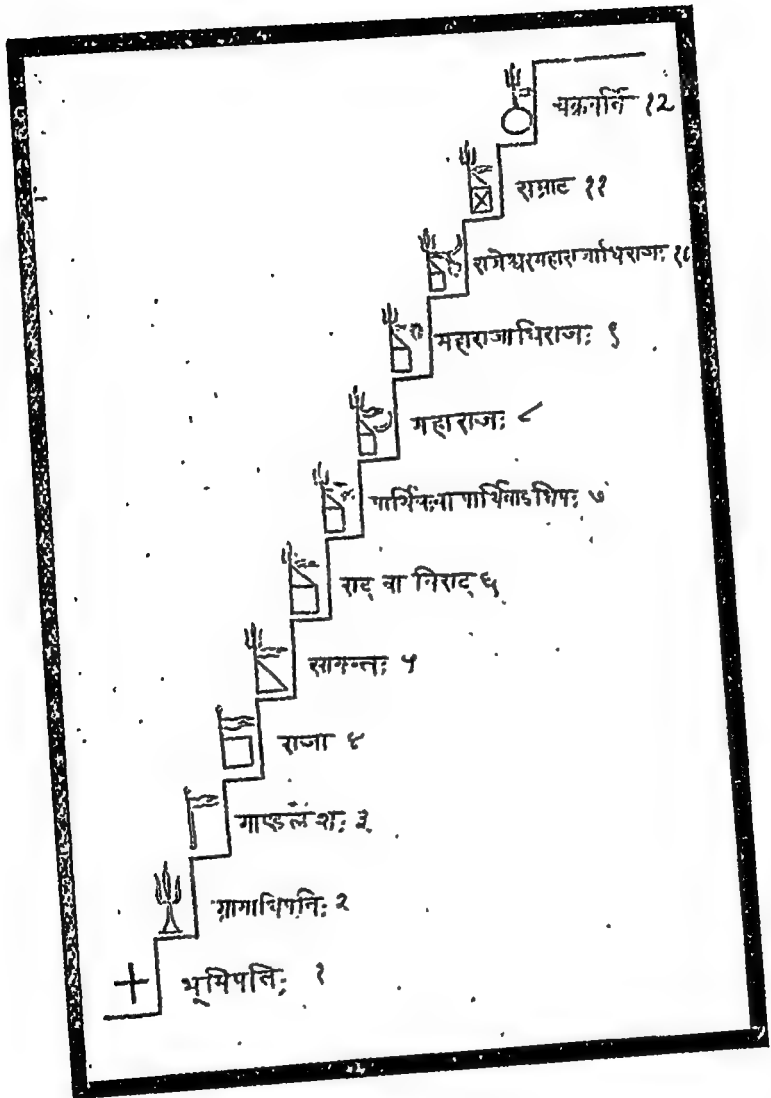 चक्रवर्ति १२
सम्राट ११
राजेश्वरमहाराजाधिराजः १०
महाराजाधिराजः ९
महाराजः ८
पार्थिवःवा पार्थिवाऽधिपः ७
राट् वा विराट् ६
सामन्तः ५
राजा ४
माण्डलेशः ३
ग्रामाधिपतिः २
भूमिपतिः १